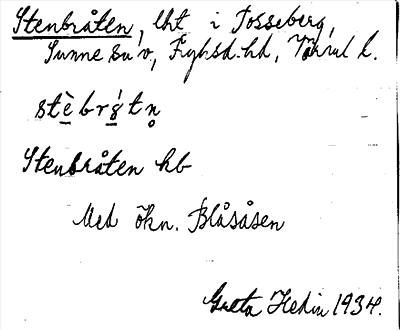 Stenbråten, lht i Tosseberg,
Sunne su v, Fryksd. hd, Värml l.
stè̱brǻ̱tn̥
Stenbråten hb
Med ökn. Blåsåsen
Greta Hedin 1934.